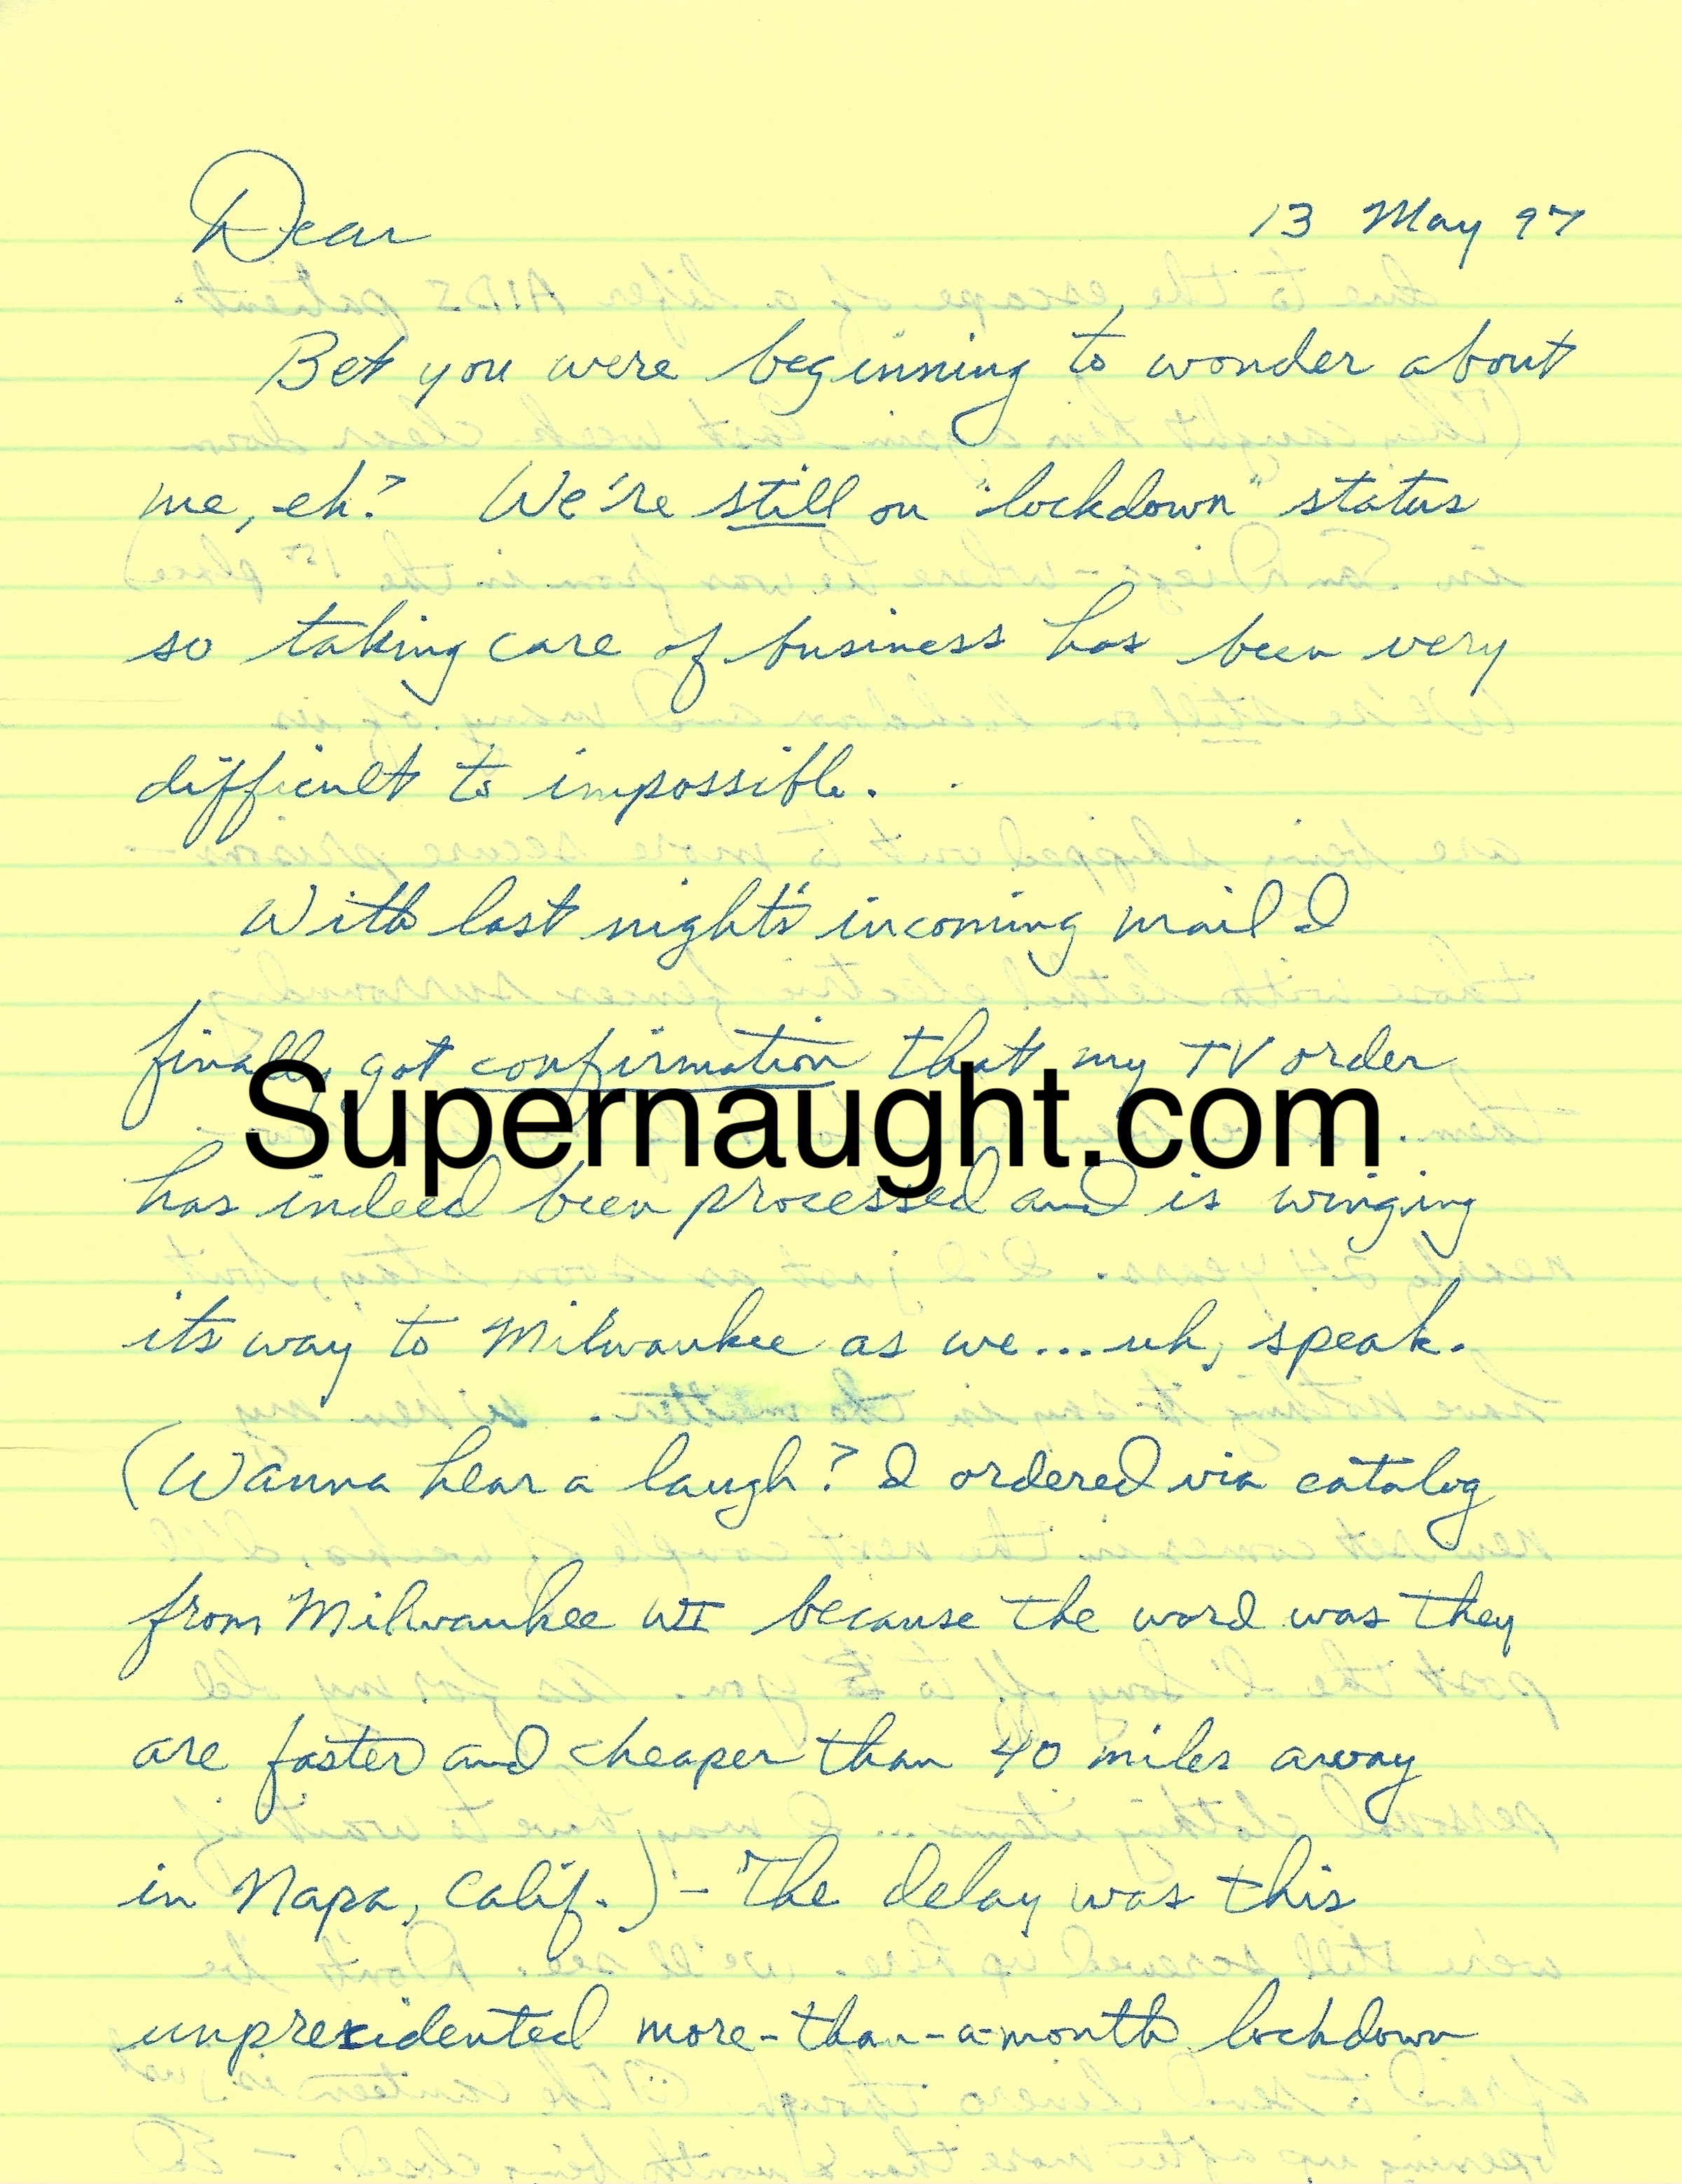 Dear 13 May 97
Bet you were beginning to wonder about
me, eh? We're still on "lockdown" status
so taking care of business has been very
difficult to impossible.
With last night's incoming mail I
finally got confirmation that my TV order
Supernaught.com
has indeed been processed and is winging
its way to Milwaukee as we... uh, speak.
(Wanna hear a laugh? I ordered via catalog
from Milwaukee WI because the word was they
are faster and cheaper than 40 miles away
in Napa, Calif.) - The delay was this
unprexidented more-than-a-month lockdown